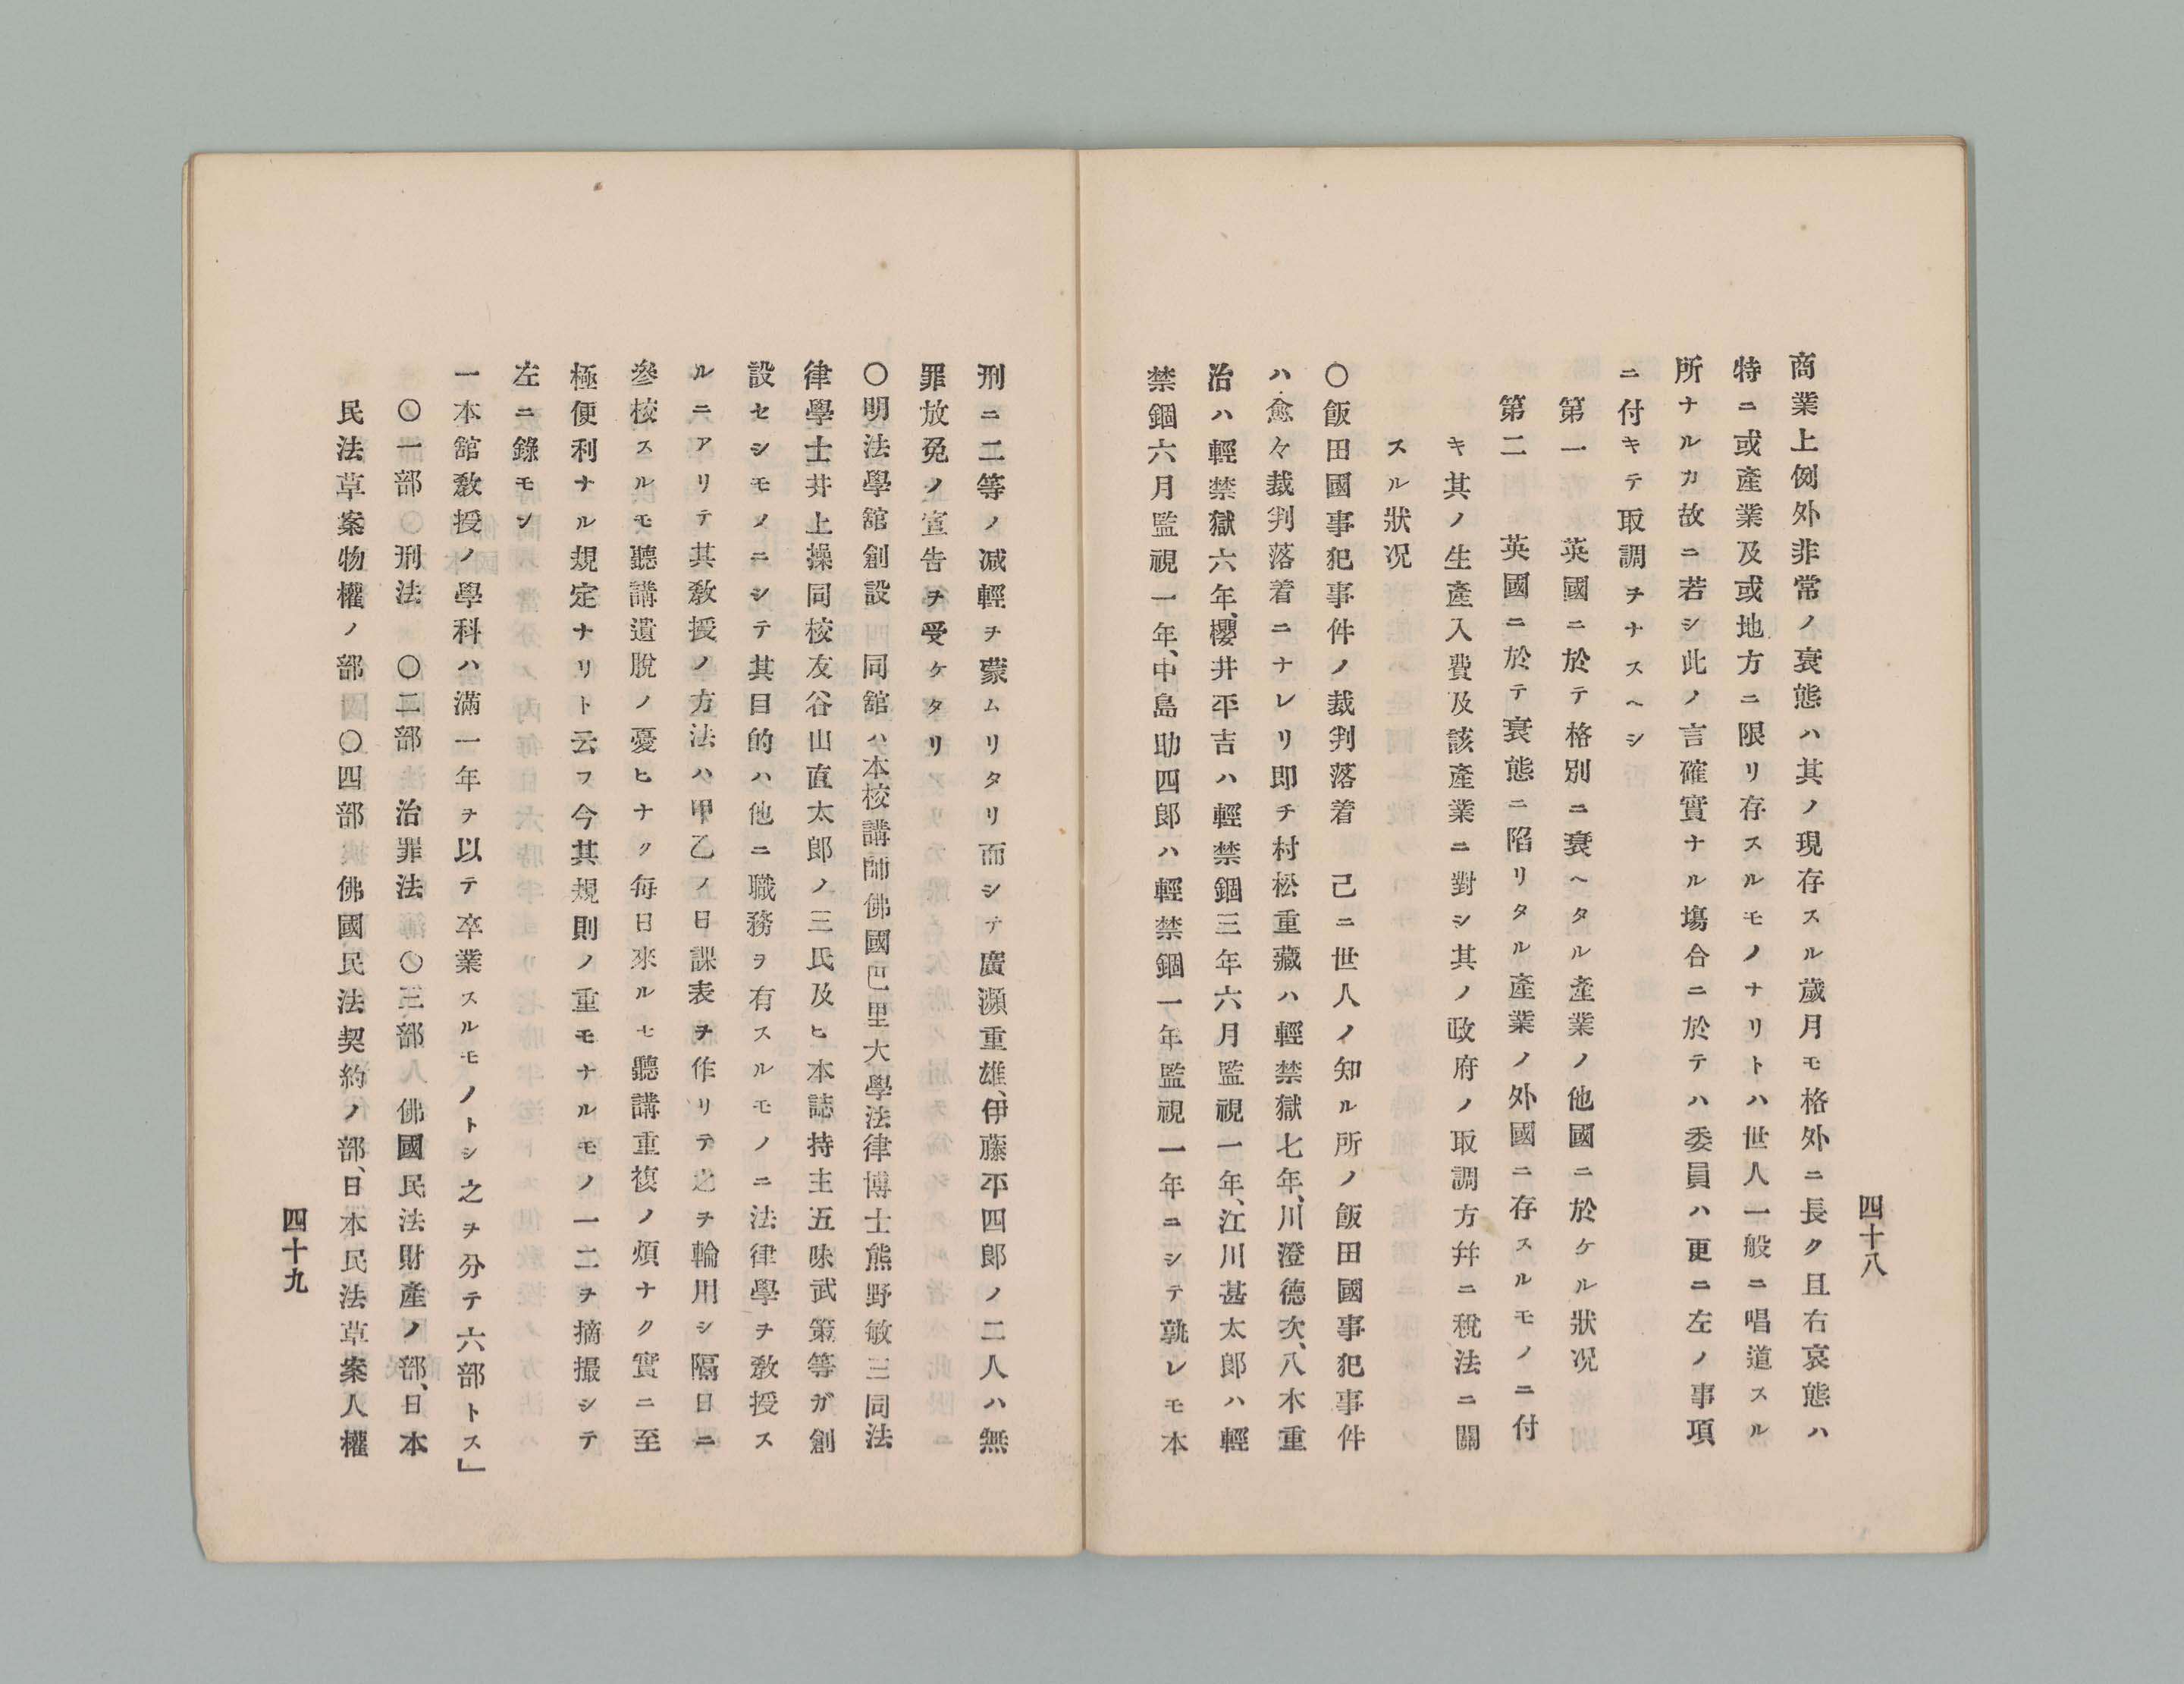 四十八
商業上例外非常ノ衰態ハ其ノ現存スル歲月モ格外ニ長ク且右哀態ハ
特ニ或產業及或地方ニ限リ存スルモノナリトハ世人一般ニ唱道スル
所ナルカ故ニ若シ此ノ言確實ナル塲合ニ於テハ委員ハ更ニ左ノ事項
ニ付キテ取調チナスヘシ
第一　英國ニ於テ格別ニ衰ヘタル產業ノ他國ニ於ケル狀况
第二　英國ニ於テ衰態ニ陷リタル產業ノ外國ニ存スルモノニ付
キ其ノ生產入費及該產業ニ對シ其ノ政府ノ取調方幷ニ稅法ニ關
スル狀况
〇飯田國事犯事件ノ裁判落着　己ニ世人ノ知ル所ノ飯田國事犯事件
ハ愈々裁判落着ニナレリ即チ村松重藏ハ輕禁獄七年、川澄德次、八木重
治ハ輕禁獄六年、櫻井平吉ハ輕禁錮三年六月監視一年、江川甚太郎ハ輕
禁錮六月監視一年、中島助四郎ハ輕禁錮一年監視一年ニシテ孰レモ本
刑ニ二等ノ減輕チ蒙ムリタリ而シテ廣瀬重雄、伊藤平四郎ノ二人ハ無
罪放免ノ宣告チ受ケタリ
〇明法學舘創設　同舘ハ本校講師佛國巴里大學法律博士熊野敏三同法
律學士井上操同校友谷山直太郎ノ三氏及ヒ本誌持主五味武策等ガ創
設セシモノニシテ其目的ハ他ニ職務ヲ有スルモノニ法律學チ敎授ス
ルニアリテ其敎授ノ方法ハ甲乙ノ日課表チ作リテ之チ輪用シ隔日ニ
參校スルモ聽講遺脫ノ憂ヒナク每日來ルモ聽講重複ノ煩ナク實ニ至
極便利ナル規定ナリト云フ今其規則ノ重モナルモノ一二ヲ摘撮シテ
左ニ錄モン
一本舘敎授ノ學科ハ滿一年ヲ以テ卒業スルモノトシ之ヲ分テ六部トス」
〇一部〇刑法　〇二部　治罪法　〇三部　佛國民法財產ノ部、日本
民法草案物權ノ部〇四部　佛國民法契約ノ部、日本民法草案人權
四十九